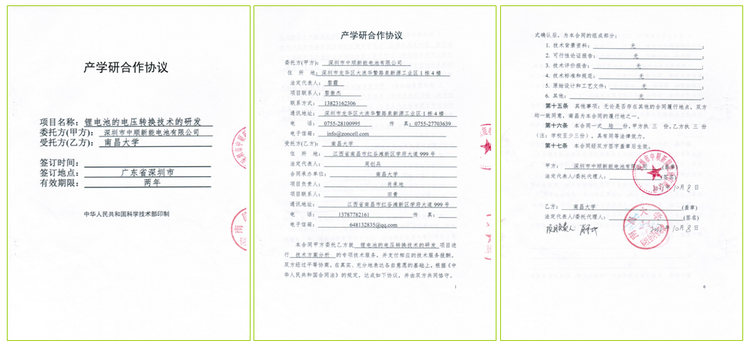 产学研合作协议
项目名称：锂电池的电压转换技术的研发
委托方(甲方)：深圳市中顺新能电池有限公司
受托方(乙方)：南昌大学
签订时间：
签订地点：广东省深圳市
有效期限：两年
中华人民共和国科学技术部印制
产学研合作协议
委托方(甲方)：深圳市中顺新能电池有限公司
住 所 地：深圳市龙华区大浪华繁路奥新源工业区1栋4楼
法定代表人：
项目联系人：
联系方式：13823162306
通讯地址：深圳市龙华区大浪华繁路奥新源工业区1栋4楼
电 话：0755-28100995 传 真：0755-27703639
电子信箱：info@zoncell.com
受托方(乙方)：南昌大学
住 所 地：江西省南昌市红谷滩新区学府大道999号
法定代表人：周创兵
合同承办单位：南昌大学
项目负责人：
项目联系人：
通讯地址：江西省南昌市红谷滩新区学府大道999号
电 话：13787782161 传 真：
电子信箱：648132835@qq.com
本合同甲方委托乙方就 锂电池的电压转换技术的研发 项目进
行 技术方案分析 的专项技术服务，并支付相应的技术服务报酬。
双方经过平等协商，在真实、充分地表达各自意愿的基础上，根据《中
华人民共和国合同法》的规定，达成如下协议，并由双方共同恪守。
1
式确认后，为本合同的组成部分：
1. 技术背景资料：无；
2. 可行性论证报告：无；
3. 技术评价报告：无；
4. 技术标准和规范：无；
5. 原始设计和工艺文件：无；
6. 其他：无。
第十五条 其他事项：无论是否所在其他的合同履行地点，双方
均一致同意，南昌为本合同的履行地之一。
第十六条 本合同一式 份，甲方执 三 份，乙方执 三 份
(注：学校至少三份)，具有同等法律效力。
第十七条 本合同经双方签字盖章后生效。
甲方：深圳市中顺新能电池有限公司(盖章)
法定代表人/委托代理人：(签名)
10月8日
乙方：南昌大学(盖章)
法定代表人/委托代理人：(签名)
10月8日